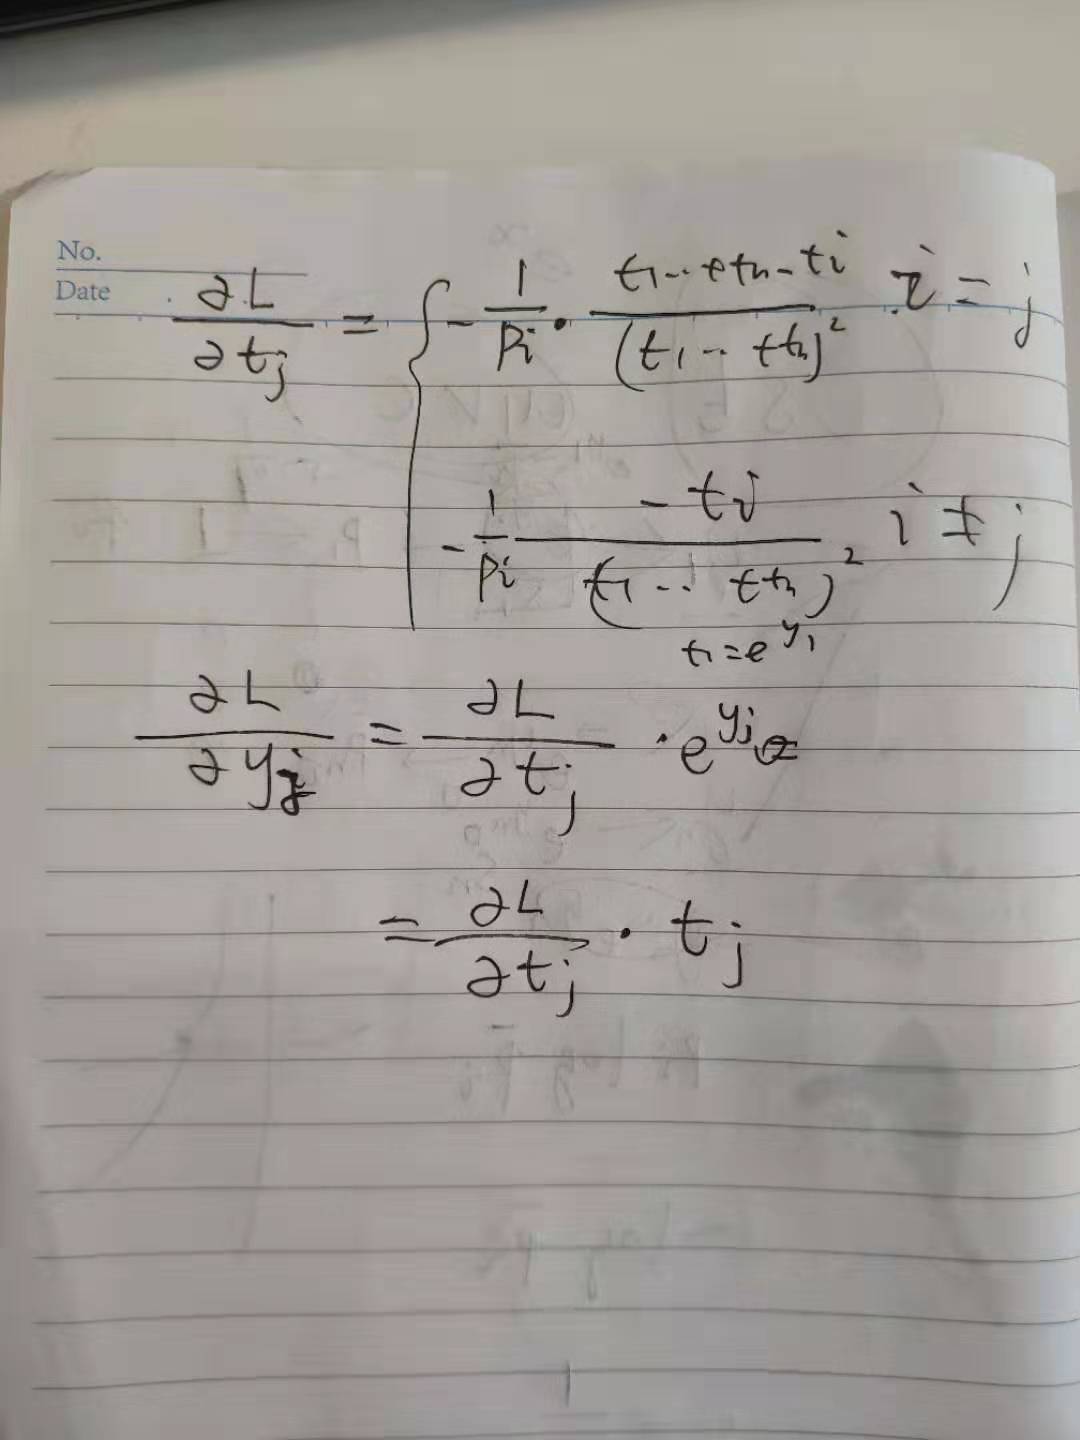 No.
Date
∂L/∂tj = { -1/Pi · (t1 ·· +tn - ti)/(t1 ·· +tn)² i = j
-1/Pi (-ti)/(t1 ·· +tn)² i ≠ j
t1 = e^y1
∂L/∂yj = ∂L/∂tj · e^yj
= ∂L/∂tj · tj